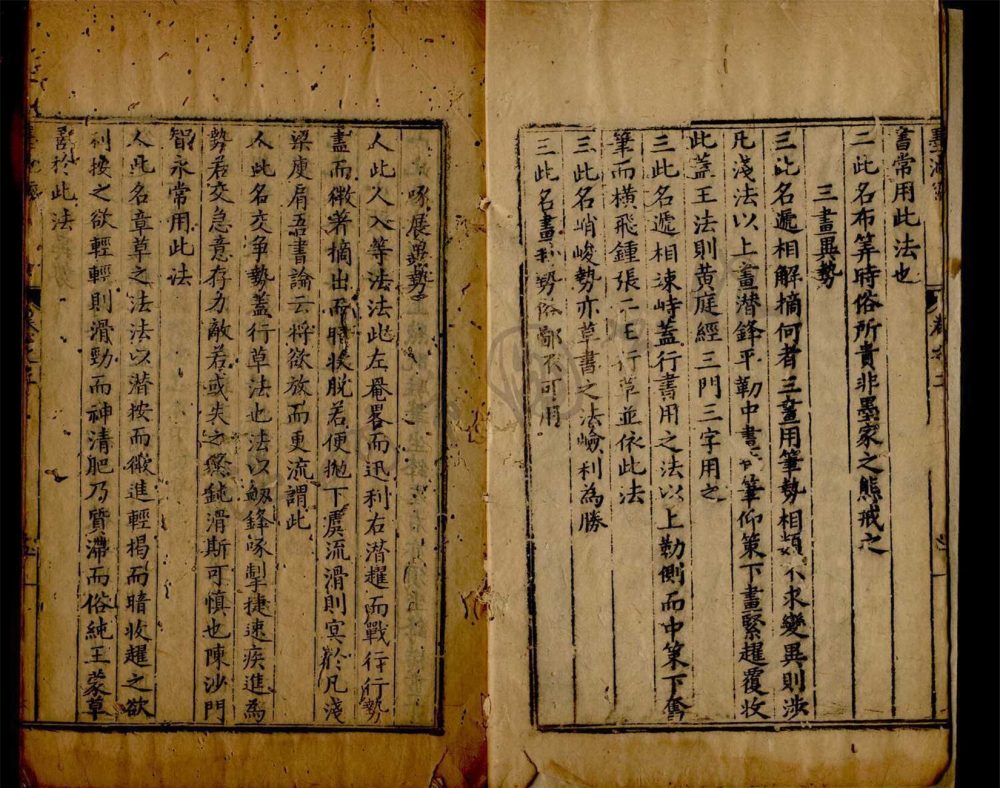 書常用此法也
二此名布筭時俗所貴非墨家之態戒之
三畫異勢
三此名遞相解摘何者三畫用筆勢相類不求變異則涉
凡淺法以上畫潜鋒平勒中畫筆仰策下畫緊趯覆收
此蓋王法則黄庭經三門三字用之
三此名遞相竦峙蓋行書用之法以上勒側而中策下奮
筆而横飛鍾張二王行草並依此法
三此名峭峻勢亦草書之法嶮利為勝
三此名畫勢俗鄙不可用
啄展異勢
人此人入等法法此左罨畧而迅利右潜趯而戰行行勢
盡而微著摘出而暗收脱若便抛下虞流滑則冥於凡淺
梁庾肩吾書論云將欲放而更流謂此
人此名交争勢蓋行草法也法以𠛬鋒啄掣捷速疾進為
勢若交急意存力敵若或失之鈍滑斯可慎也陳沙門
智永常用此法
人此名章草之法法以潜按而微進輕揭而暗收趯之欲
利按之欲輕輕則滑勁而神清肥乃質滯而俗純王蒙章
於此法